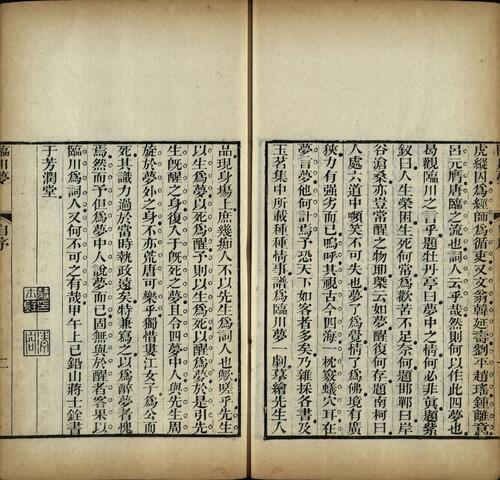 虎縱囚爲經師爲循吏又文翁韓延壽劉平趙瑤鍾離意
呂元膺唐臨之流也詞人云乎哉然則何以作此四夢也
曷觀臨川之言乎題牡丹亭曰夢中之情何必非眞題紫
釵曰人生榮困生死何常爲歡苦不足奈何題邯鄲曰岸
谷滄桑亦豈常醒之物耶槩云如夢醒復何存題南柯曰
人處六道中嚬笑不可失也夢了爲覺情了爲佛境有廣
狹力有強劣而已嗚呼其視古今四海一枕竅蟻穴耳在
夢言夢他何計焉予恐天下如客者多矣乃雜採各書及
玉茗集中所載種種情事譜爲臨川夢一劇摹繪先生人
品現身塲上庶幾痴人不以先生爲詞人也歟嗟乎先生
以生爲夢以死爲醒予則以生爲死以醒爲夢於是引先
生旣醒之身復入于旣死之夢且令四夢中人與先生周
旋於夢外之身不亦荒唐可樂乎獨惜婁江女子爲公而
死其識力過於當時執政遠矣特兼寫之以爲醉夢者愧
焉然而予但爲夢中人說夢而已固無與於醒者客果以
臨川爲詞人又何不可之有哉甲午上巳鉛山蔣士銓書
于芳潤堂
臨川夢 自序 二